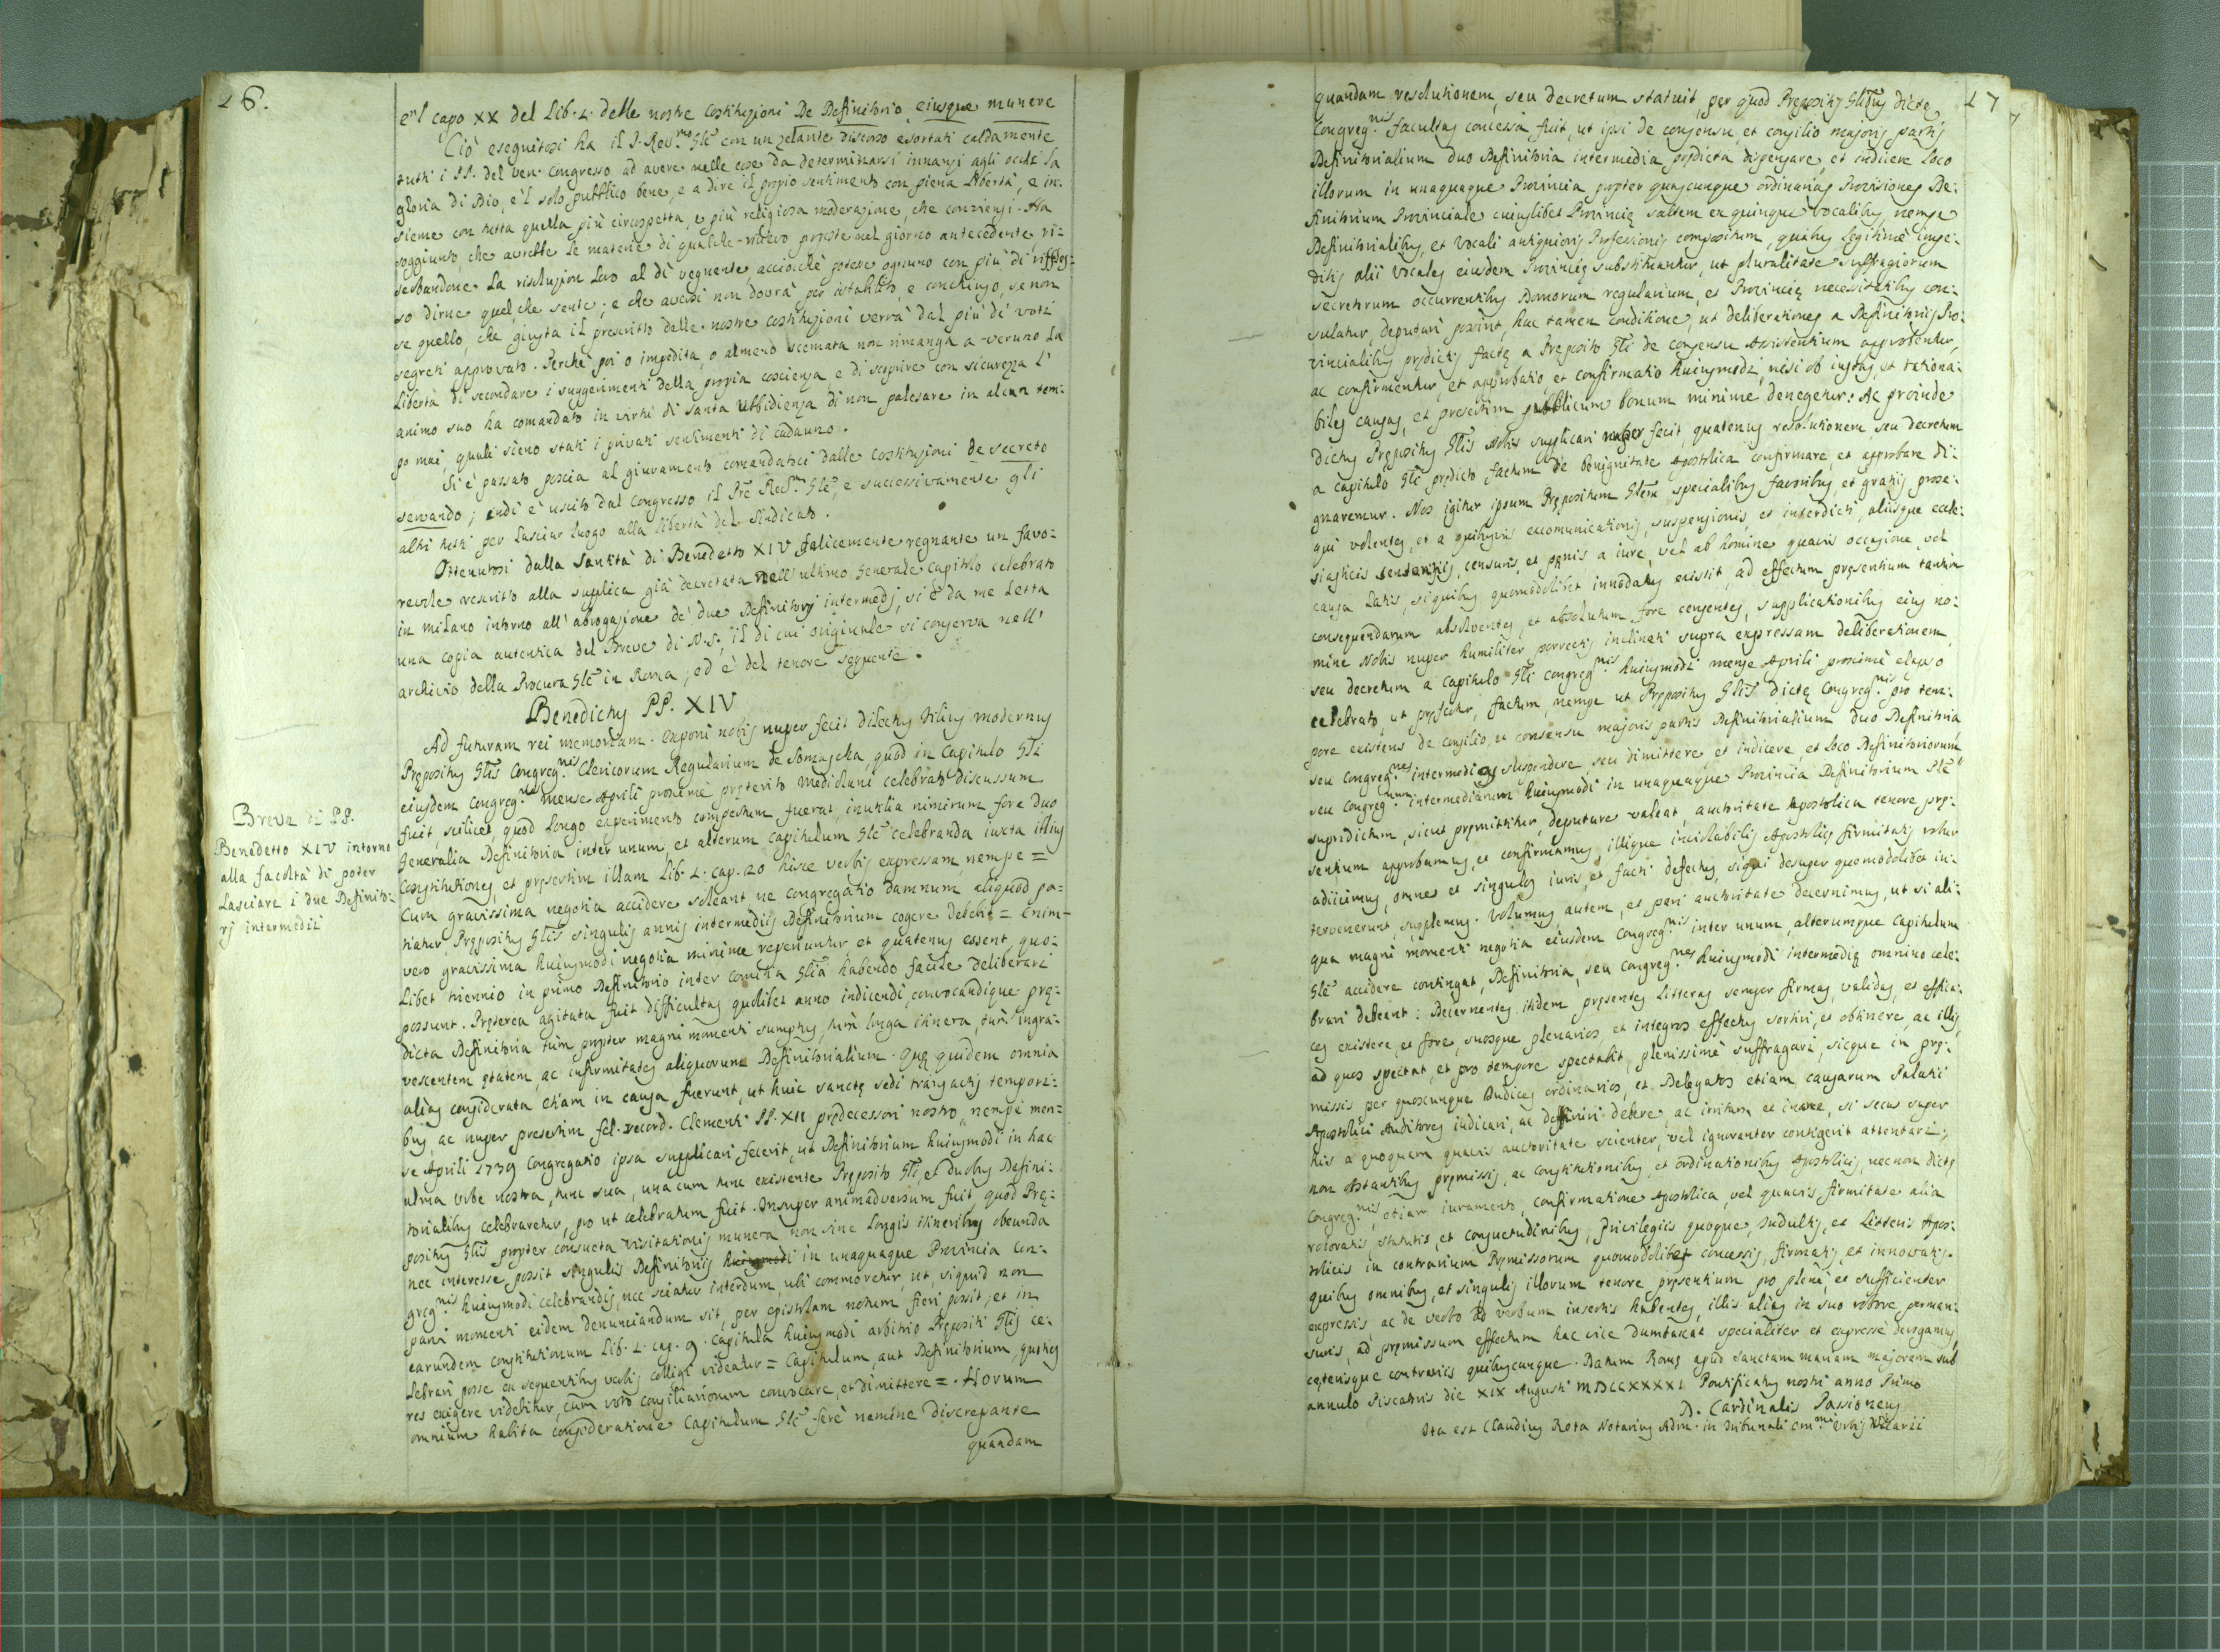 16.
e'l capo XX del Lib. 1. delle nostre Costituzioni De Definitorio, eiusque munere
Ciò eseguitosi ha il P. Rev.mo Gle con un zelante discorso esortati caldamente
tutti i PP. del Ven. Congresso ad avere nelle cose da determinarsi innanzi agli occhi la
gloria di Dio, e'l solo pubblico bene, e a dire il propio sentimento con piena libertà, e in-
sieme con tutta quella più circospetta, e più religiosa moderazione, che conviensi. Ha
soggiunto, che avrebbe le materie di qualche rilievo proposte nel giorno antecedente, ri-
serbandone la risoluzion loro al dì vegnente acciocchè potesse ognuno con più di rifles-
so dirne quel, che sente; e che aversi non dovrà per istabilito, e conchiuso, se non
se quello, che giusta il prescritto delle nostre costituzioni verrà dal più di voti
segreti approvato. Perchè poi o impedita, o almeno scemata non rimanga a veruno la
libertà di secondare i suggerimenti della propia coscienza, e di scoprire con sicurezza l'
animo suo ha comandato in virtù di santa Ubbidienza di non palesare in alcun tem-
po mai, quali sieno stati i privati sentimenti di cadauno.
Si è passato poscia al giuramento comandatoci dalle costituzioni de secreto
servando; indi è uscito dal Congresso il Pre Rev.mo Gle, e successivamente gli
altri tutti per lasciar luogo alla libertà del Sindicato.
Ottenutosi dalla Santità di Benedetto XIV felicemente regnante un favo-
revole rescritto alla supplica già decretata nell'ultimo Generale Capitolo celebrato
in Milano intorno all'abrogazione de' due Definitorj intermedj, si è da me letta
una copia autentica del Breve di N.S., il di cui originale si conserva nell'
archivio della Procura Gle in Roma, ed è del tenore seguente.
Benedictus PP. XIV
Breve di PP.
Benedetto XIV intorno
alla facoltà di poter
lasciare i due Definito-
rj intermedii
Ad futuram rei memoriam. Exponi nobis nuper fecit dilectus Filius modernus
Prępositus Glis Congreg.nis Clericorum Regularium de Somascha, quod in Capitulo Gli
eiusdem Congreg.nis mense Aprili proxime pręterito Mediolani celebrato discussum
fuit, scilicet, quod longo experimento compertum fuerat, inutilia nimirum fore duo
Generalia Definitoria inter unum, et alterum Capitulum Gle celebranda iuxta illius
Constitutiones, et pręsertim illam Lib. 1. cap. 20 hisce verbis expressam, nempe =
Cum gravissima negotia accidere soleant ne Congregatio damnum aliquod pa-
tiatur, Prępositus Glis singulis annis intermediis Definitorium cogere debebit = Enim-
vero gravissima huiusmodi negotia minime reperiuntur, et quatenus essent, quo-
libet triennio in primo Definitorio inter Comitia Glia habendo facile deliberari
possunt. Pręterea agitata fuit difficultas quolibet anno indicendi, convocandique prę-
dicta Definitoria tùm propter magni momenti sumptus, tùm longa itinera, tùm ingra-
vescentem ętatem, ac infirmitates aliquorum Definitorialium. Quę quidem omnia
aliàs considerata etiam in causa fuerunt, ut huic sanctę sedi transactis tempori-
bus, ac nuper presertim fel. record. Clementi PP. XII prędecessori nostro, nempe men-
se Aprili 1739 Congregatio ipsa supplicari fecerit, ut Definitorium huiusmodi in hac
alma Urbe nostra, tunc sua, una cum tunc existente Pręposito Gli, et duobus Defini-
torialibus celebraretur, pro ut celebratum fuit. Insuper animadversum fuit, quod Prę-
positus Glis propter consueta visitationis munera non sine longis itineribus obeunda
nec interesse possit singulis Definitoriis huiusmodi in unaquaque Provincia Con-
greg.nis huiusmodi celebrandis, nec sciatur interdum, ubi commoretur, ut, siquid non
parvi momenti eidem denunciandum sit, per epistolam notum fieri possit; et in
earundem Constitutionum Lib. 1. cap. 9. Capitula huiusmodi arbitrio Prępositi Glis ce-
lebrari posse ex sequentibus verbis colligi videatur = Capitulum, aut Definitorium, quoties
res exigere videbitur, cum voto consiliariorum convocare, et dimittere =. Horum
omnium habita consideratione Capitulum Gle ferè nemine discrepante
quandam
17
quandam resolutionem, seu decretum statuit, per quod Pręposito Gli dictę
Congreg.nis facultas concessa fuit, ut ipsi de consensu, et consilio majoris partis
Definitorialium duo Definitoria intermedia prędicta dispensare, et indicere loco
illorum in unaquaque Provincia propter quascunque ordinarias Provisiones De-
finitorium Provinciale cuiuslibet Provincię saltem ex quinque vocalibus, nempe
Definitorialibus, et Vocali antiquioris Professionis compositum, quibus legitimè impe-
ditis alii Vocales eiusdem Provincię substituantur, ut pluralitate suffragiorum
secretorum occurrentibus Domorum regularium, et Provincię necessitatibus con-
sulatur, deputari possint, hac tamen conditione, ut deliberationes a Definitoriis Pro-
vincialibus prędictis factę a Pręposito Gli de consensu Assistentium approbentur,
ac confirmentur, et approbatio, et confirmatio huiusmodi, nisi ob iustas, et rationa-
biles causas, et presertim publicum bonum minime denegetur: Ac proinde
dictus Prępositus Glis Nobis supplicari nuper fecit, quatenus resolutionem, seu decretum
a Capitulo Gli prędicto factum de Benignitate Apostolica confirmare, et approbare di-
gnaremur. Nos igitur ipsum Prępositum Glem specialibus favoribus, et gratiis prose-
qui volentes, et a quibusvis excomunicationis, suspensionis, et interdicti, aliisque eccle-
siasticis sententiis, censuris, et pęnis a iure, vel ab homine quavis occasione, vel
causa latis, siquibus quomodolibet innodatus existit, ad effectum pręsentium tantùm
consequendarum absolventes, et absolutum fore censentes, supplicationibus eius no-
mine Nobis nuper humiliter porrectis inclinati supra expressam deliberationem
seu decretum a Capitulo Gli Congreg.nis huiusmodi mense Aprili proximè elapso
celebrato, ut pręfertur, factum, nempe ut Prępositus Glis dictę Congreg.nis pro tem-
pore existens de consilio, et consensu majoris partis Definitorialium duo Definitoria
seu Congreg.nes intermedias suspendere seu dimittere, et indicere, et loco Definitoriorum
seu Congreg.num intermediarum huiusmodi in unaquaque Provincia Definitorium Ple
supradictum, sicut pręmittitur, deputare valeat, auctoritate Apostolica tenore prę-
sentium approbamus, et confirmamus, illique inviolabilis Apostolicę firmitatis robur
adiicimus, omnes et singulos iuris, et facti defectus, siqui desuper quomodolibet in-
tervenerunt, supplemus. Volumus autem, et pari auctoritate decernimus, ut si ali-
qua magni momenti negotia eiusdem Congreg.nis inter unum, alterumque Capitulum
Gle accidere contingat, Definitoria, seu Congreg.nes huiusmodi intermedię omnino cele-
brari debeant: Decernentes itidem pręsentes Litteras semper firmas, validas, et effica-
ces existere, et fore, suosque plenarios, et integros effectus sortiri, et obtinere, ac illis,
ad quos spectat, et pro tempore spectabit, plenissimè suffragari, sicque in prę-
missis per quoscunque Iudices ordinarios, et Delegatos etiam causarum Palatii
Apostolici Auditores iudicari, ac definiri debere, ac irritum et inane, si secus super
his a quoquam quavis auctoritate scienter, vel ignoranter contigerit attentari;
non obstantibus pręmissis, ac Constitutionibus, et ordinationibus Apostolicis, necnon dictę
Congreg.nis, etiam iuramento, confirmatione Apostolica, vel quavis firmitate alia
roboratis, statutis, et consuetudinibus, Privilegiis quoque, Indultis, et Litteris Apos-
tolicis in contrarium Pręmissorum quomodolibet concessis, firmatis, et innovatis.
quibus omnibus, et singulis illorum tenore pręsentium pro plenè, et sufficienter
expressis, ac de verbo ad verbum insertis habentes, illis aliàs in suo robore perman-
suris, ad pręmissum effectum hac vice dumtaxat specialiter et expressè derogamus,
cęterisque contrariis quibuscunque. Datum Romę apud Sanctam Mariam Majorem sub
annulo Piscatoris die XIX Augusti MDCCXXXXI Pontificatus nostri anno Primo
D. Cardinalis Passioneus
Ita est Claudius Rota Notarius Adm. in Tribunali Em.mi Urbis Vicarii